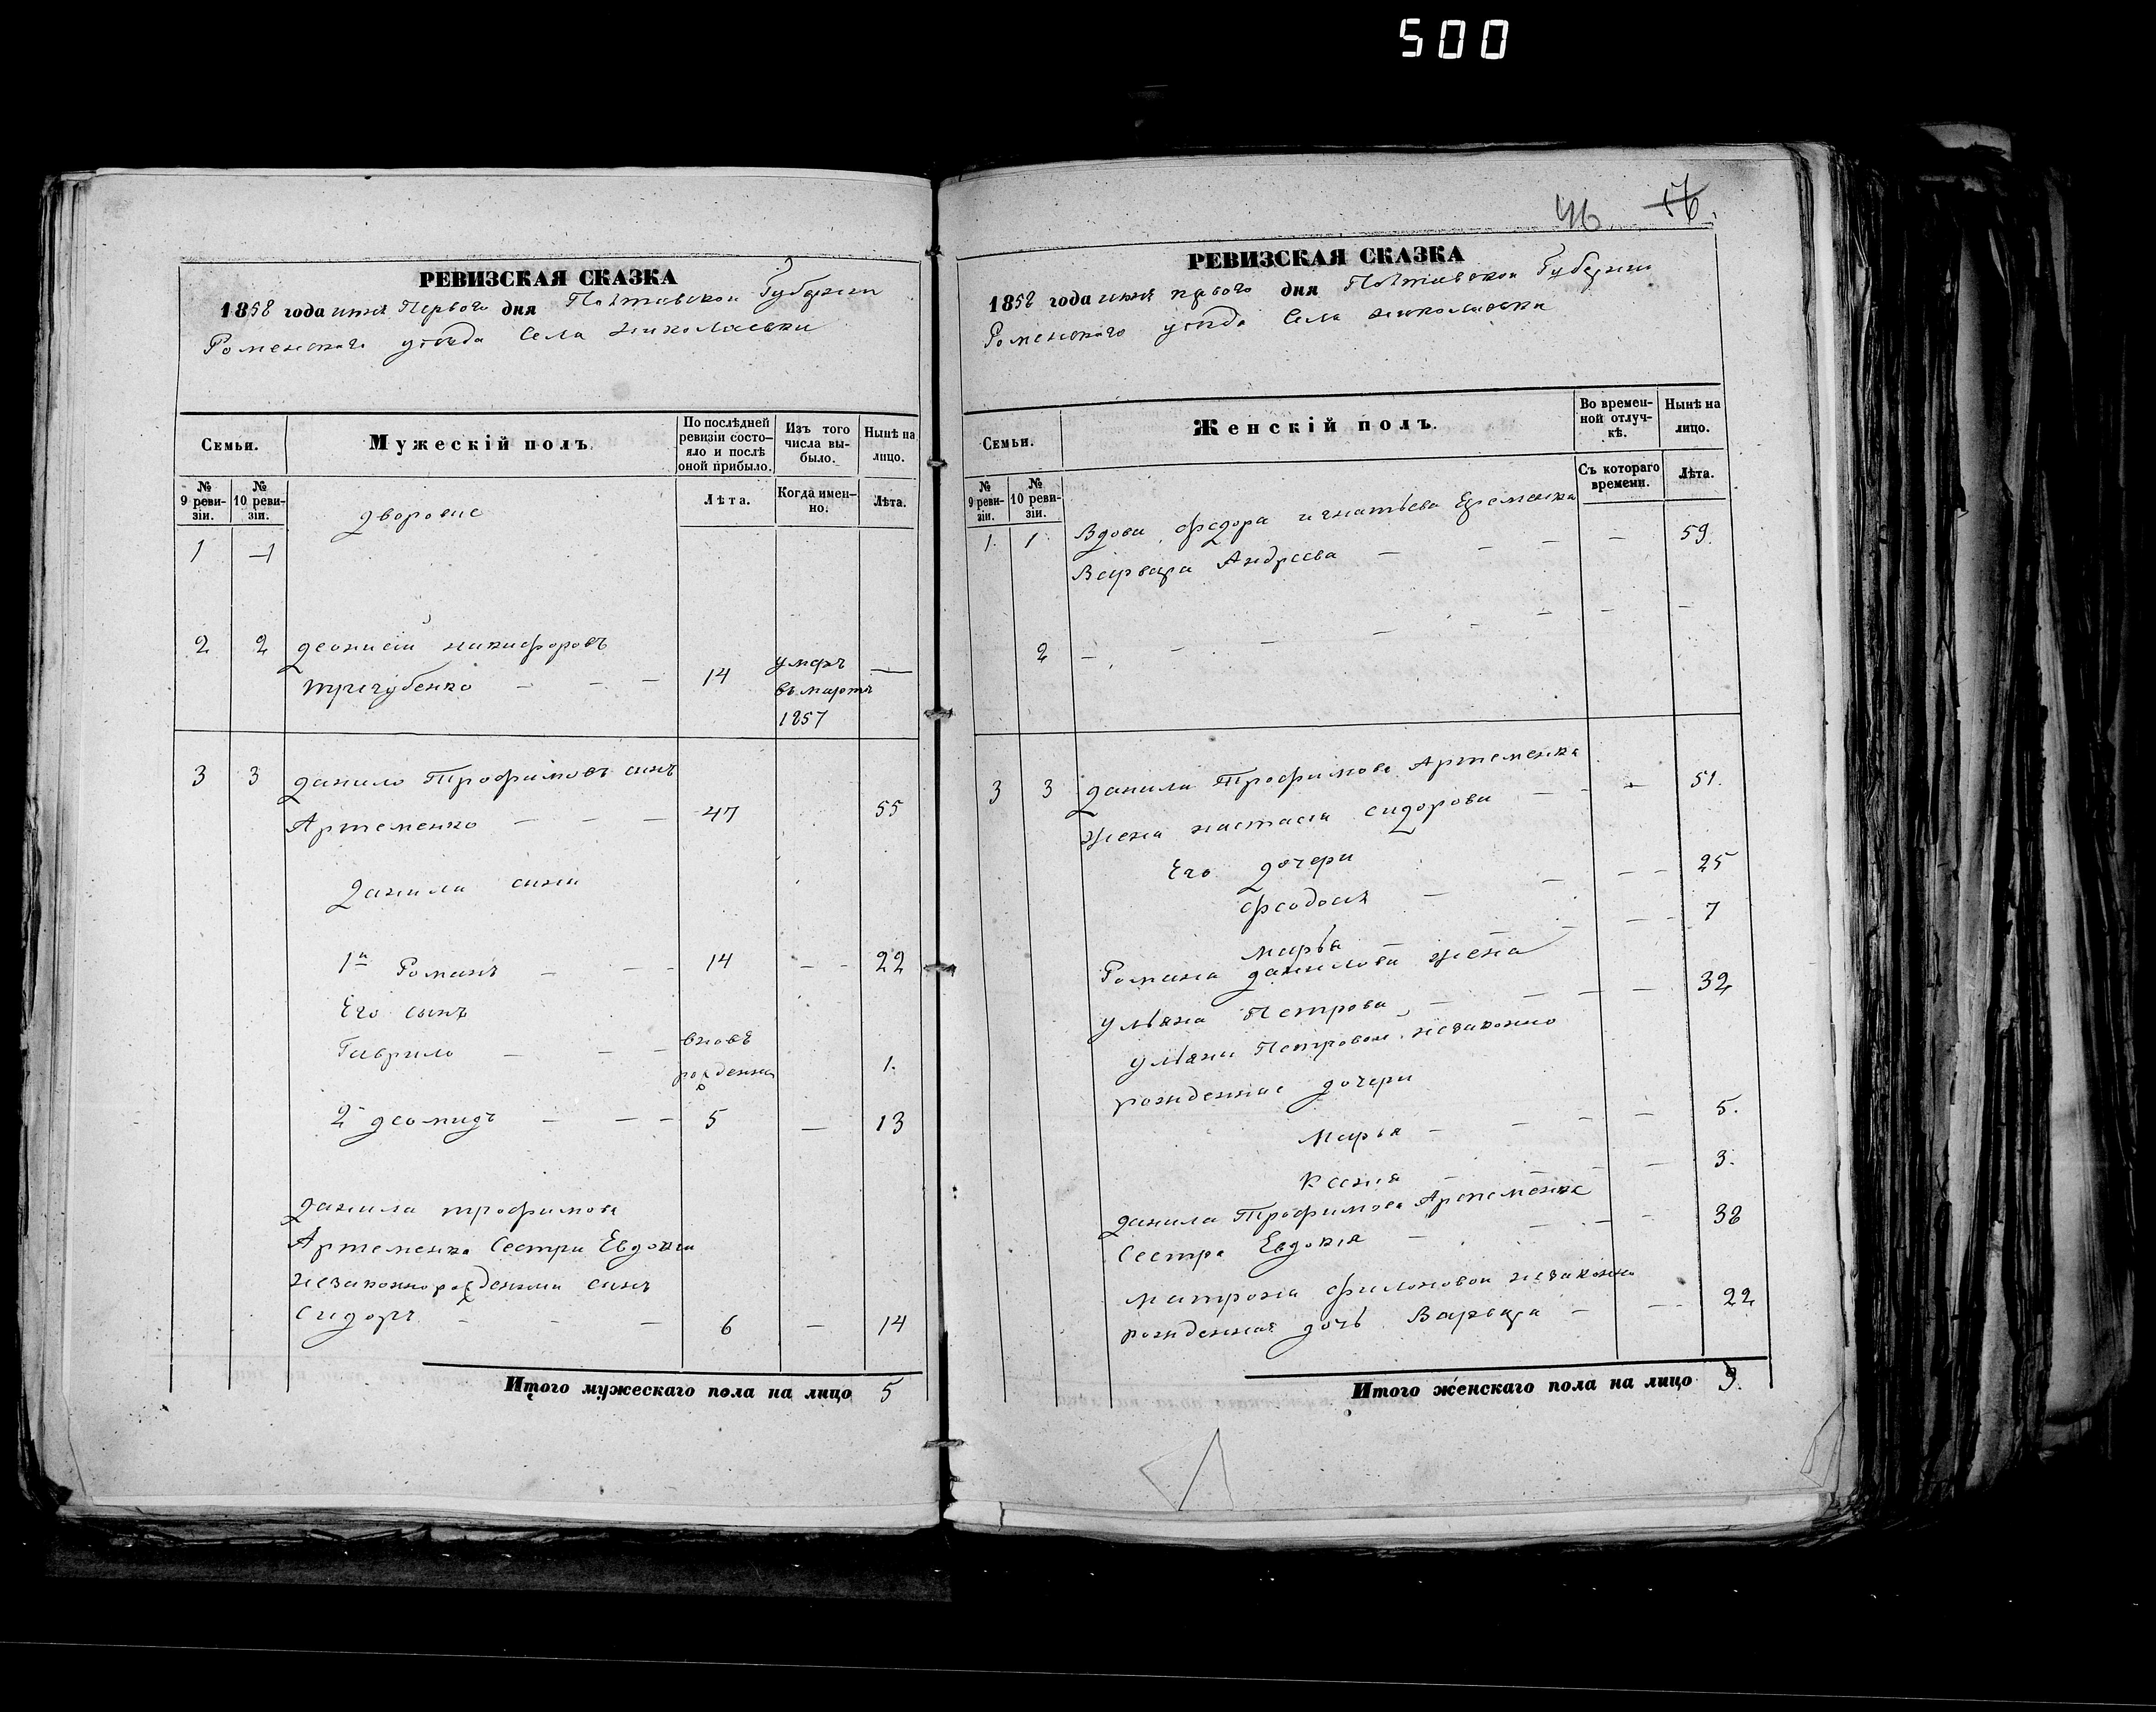 500
РЕВИЗСКАЯ СКАЗКА
1858 года июня Первого дня Полтавской Губернии
Роменского уезда Села николаевки
Семьи.
Мужескій полъ.
По послѣдней ревизіи состояло и послѣ оной прибыло.
Изъ того числа выбыло.
Нынѣ на лицо.
№ 9 ревизіи.
№ 10 ревизіи.
Лѣта.
Когда именно.
Лѣта.
дворовие
1 1
2 2 деонисій никифоровъ
тригубенко — — — 14 умеръ въ мартѣ 1857 —
3 3 данило Трофимовъ синъ
Артеменко — — — 47 55
данила сини
1й Романъ — — - 14 — - 22
Его сынъ
Гаврило — — — вновь рожденна 1.
2 деомидъ — — - 5 — 13
данила трофимова
Артеменка Сестри Евдокии
незаконнорожденний синъ
Сидоръ - - — 6 — 14
Итого мужескаго пола на лицо 5
46 16.
РЕВИЗСКАЯ СКАЗКА
1858 года июня первого дня Полтавской Губернии
Роменского уезда Села николаевки
Семьи.
Женскій полъ.
Во временной отлучкѣ.
Нынѣ на лицо.
№ 9 ревизіи.
№ 10 ревизіи.
Съ котораго времени.
Лѣта.
1. 1. Вдова федора игнатьева Еременка
Варвара Андреева — - — — 59.
2 — - — — - — — —
3 3 данила Трофимова Артеменка
жена настасия сидорова — - — 51.
Его дочери
феодосия — — — - 25
марья — - — - 7
Романа данилова жена
ульяна Петрова — — — — 32
ульяни Петровой незаконно
рожденние дочери
Марья — — — — 5.
Ксения — — — 3.
данила Трофимова Артеменка
Сестра Евдокия — — - — 38
матрони филоновой незаконно
рожденная дочь Варвара — — - 22
Итого женскаго пола на лицо 9.